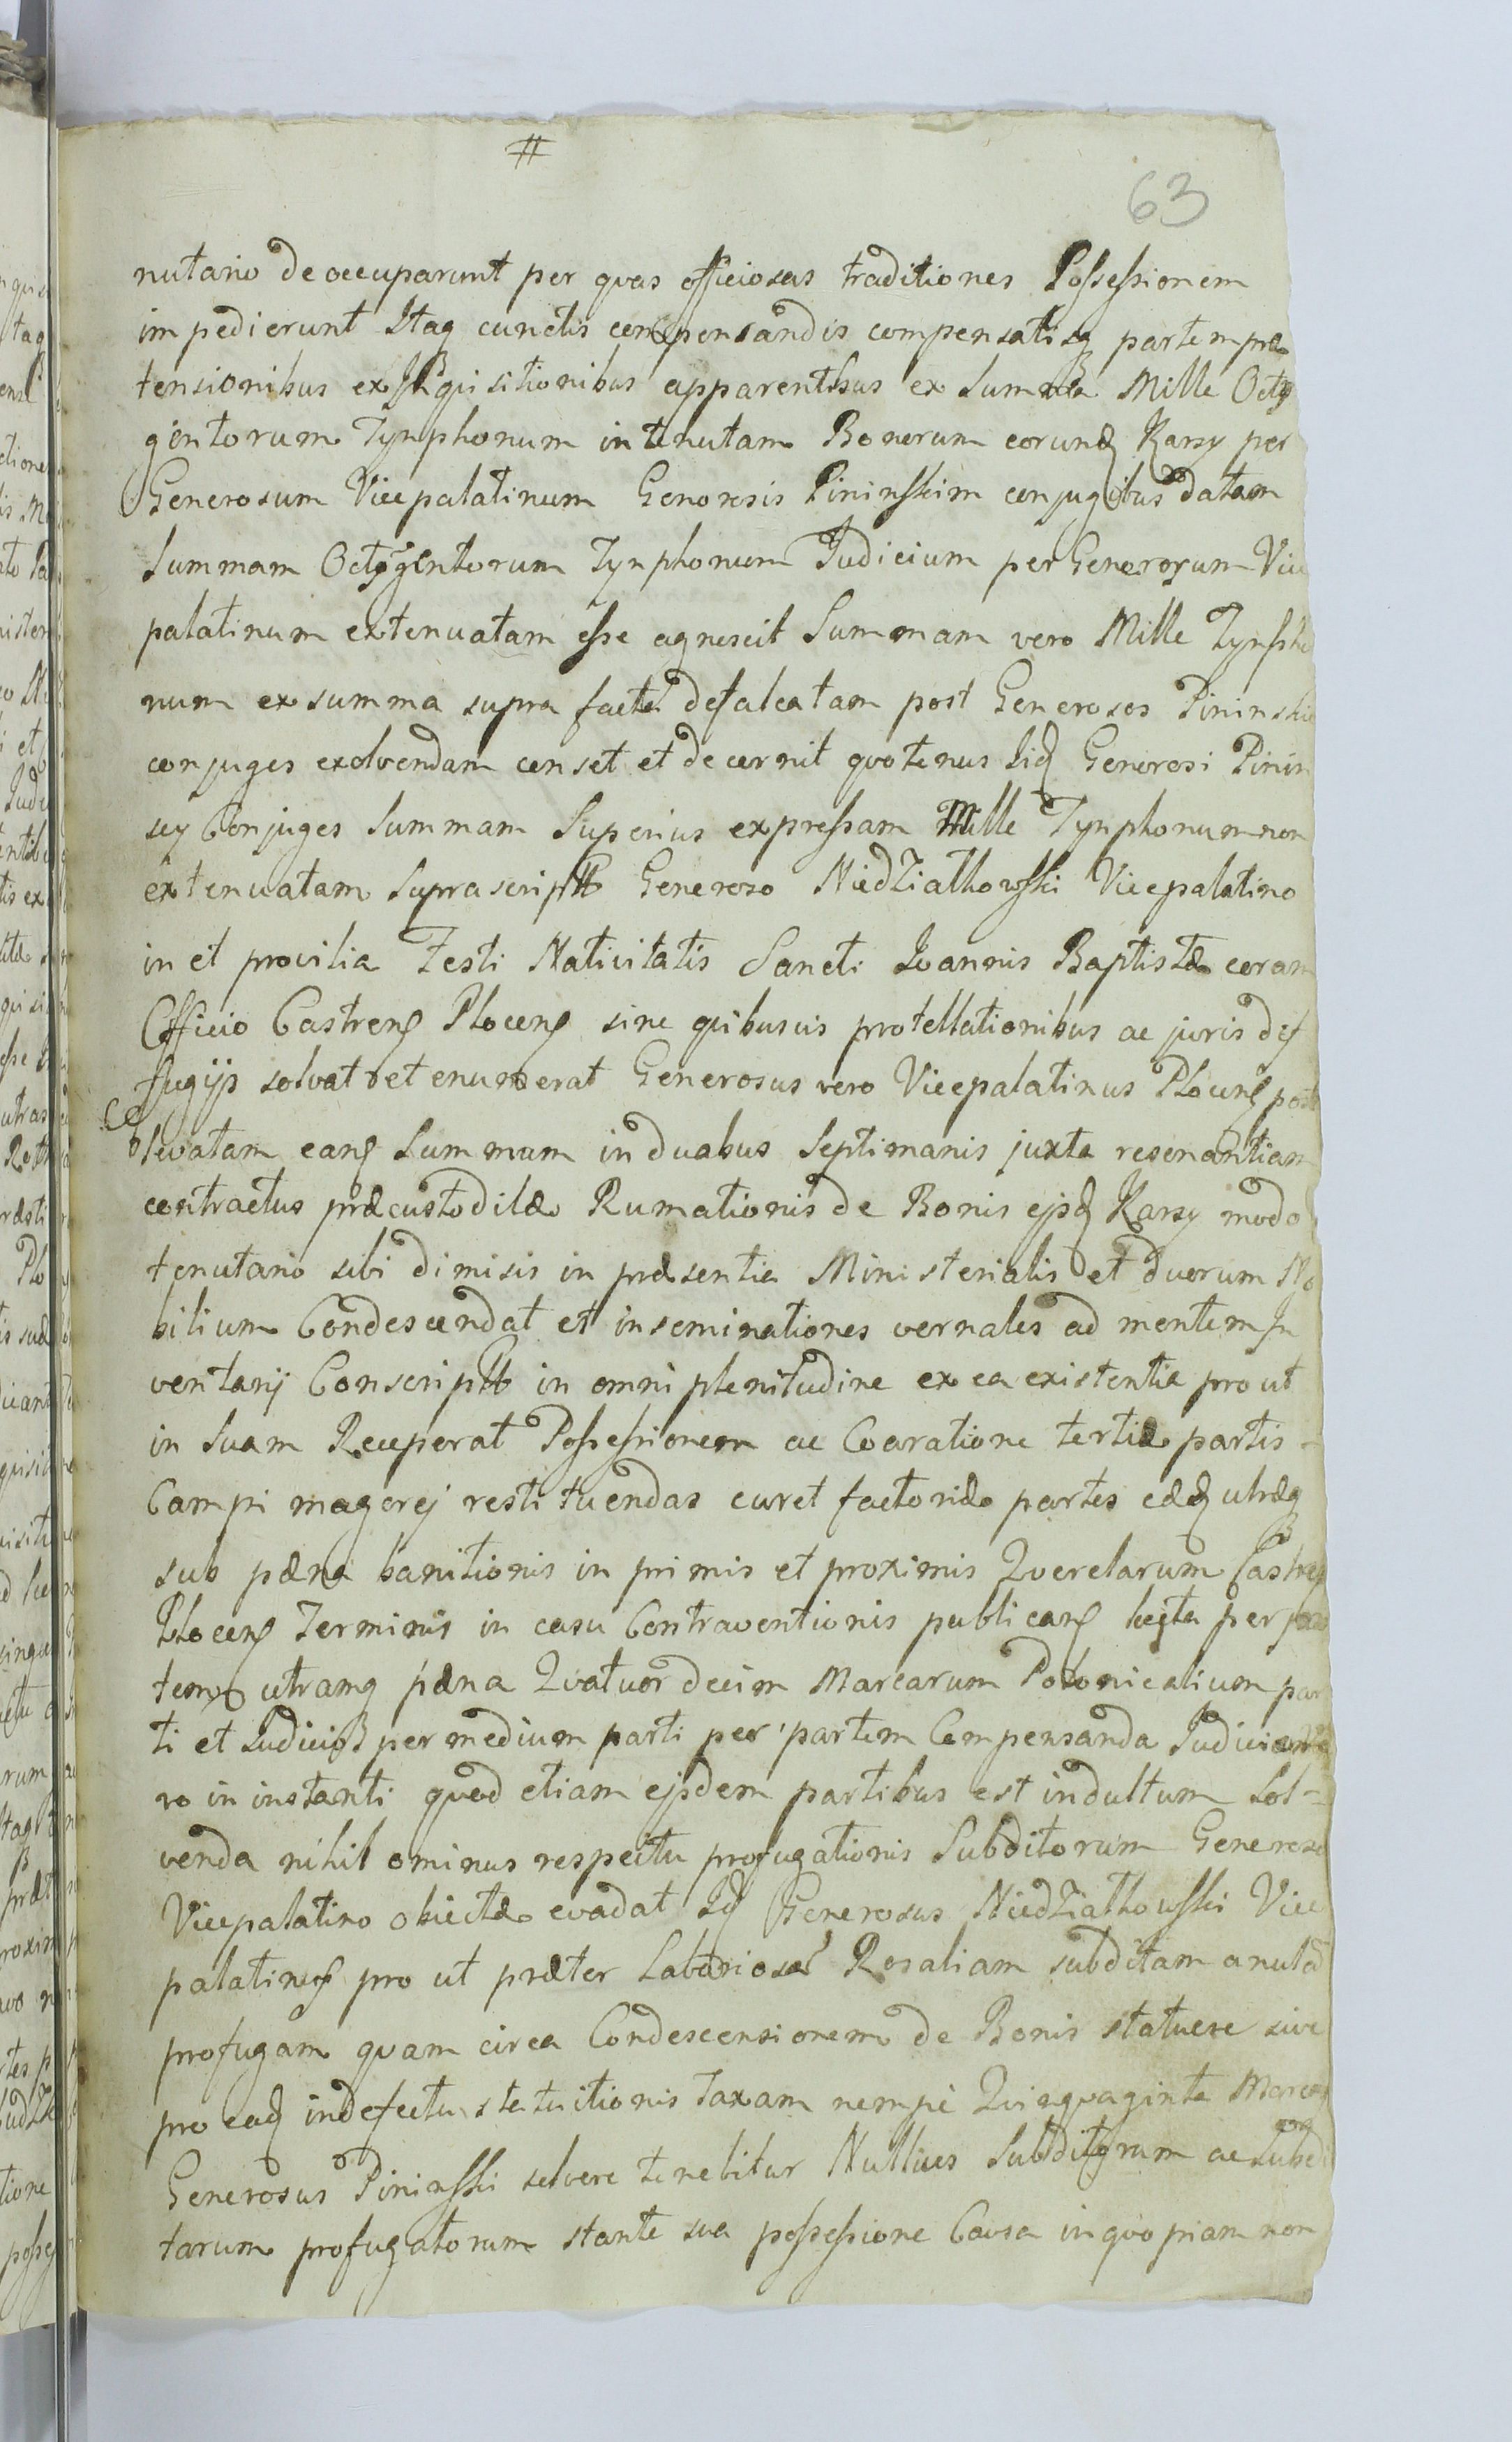 #
63
nutario de occuparunt per quas officiosas traditiones Possessionem
impedierunt Itaq cunctis compensandis compensatisq partem præ
tensionibus ex Inquisitionibus apparentibus ex Summa Mille Octin
gentorum Tynphonum in tenutam Bonorum eorund Karsy per
Generosum Vicepalatinum Generosis Pininskim conjugibus datam
Summam Octingentorum Tynphonum Judicium per Generosum Vice
palatinum extenuatam esse agnoscit Summam vero Mille Tynpho
num ex summa supra facta defalcatam post Generosos Pininskie
conjuges exolvendam censet et decernit quotenus iid Generosi Pinin
scy Conjuges Summam Superius expressam Mille Tynphonum non
extenuatam Suprascripto Generoso Niedzialkowski Vicepalatino
in et pro vilia Festi Nativitatis Sancti Joannis Baptistæ coram
Officio Castren Plocen sine quibusvis protellationibus ac juris def
fugijs solvat et enumerat Generosus vero Vicepalatinus Plocen post
levatam ean Summam in duabus Septimanis juxta resonantiam
contractus præcustoditæ Rumationis de Bonis ejsd Karsy modo
tenutario sibi dimisis in præsentia Ministerialis et duorum No
bilium Condescendat et inseminationes vernales ad mentem In
ventarij Conscripti in omni plenitudine ex ea existentia pro ut
in Suam Receperat Possessionem ac Coaratione tertiæ partis
Campi magorej restituendas curet factoriæ partes eæd utræq
sub pæna banitionis in primis et proximis Querelarum Castren
Plocen Terminis in casu Contraventionis publican lucta per par
tem utramq pæna Quatuordecim Marcarum Polonicalium par
ti et Judicio per medium parti per partem Compensanda Judicio ve
ro in instanti quod etiam ejsdem partibus est indultum Sol=
venda nihilominus respectu profugationis Subditorum Generoso
Vicepalatino obiectæ evadat Id Generosus Niedzialkowski Vice
palatinus pro ut præter Laboriosa Rosaliam subditam a nuta
profugam quam circa Condescensionem de Bonis statuere sive
pro ead in defectu statuitionis taxam nempè Quinquaginta Marcas
Generosus Pininski solvere tenebitur Nullius Subditorum ac Subdi
tarum profugatorum stante sua possessione Causa in quopiam non